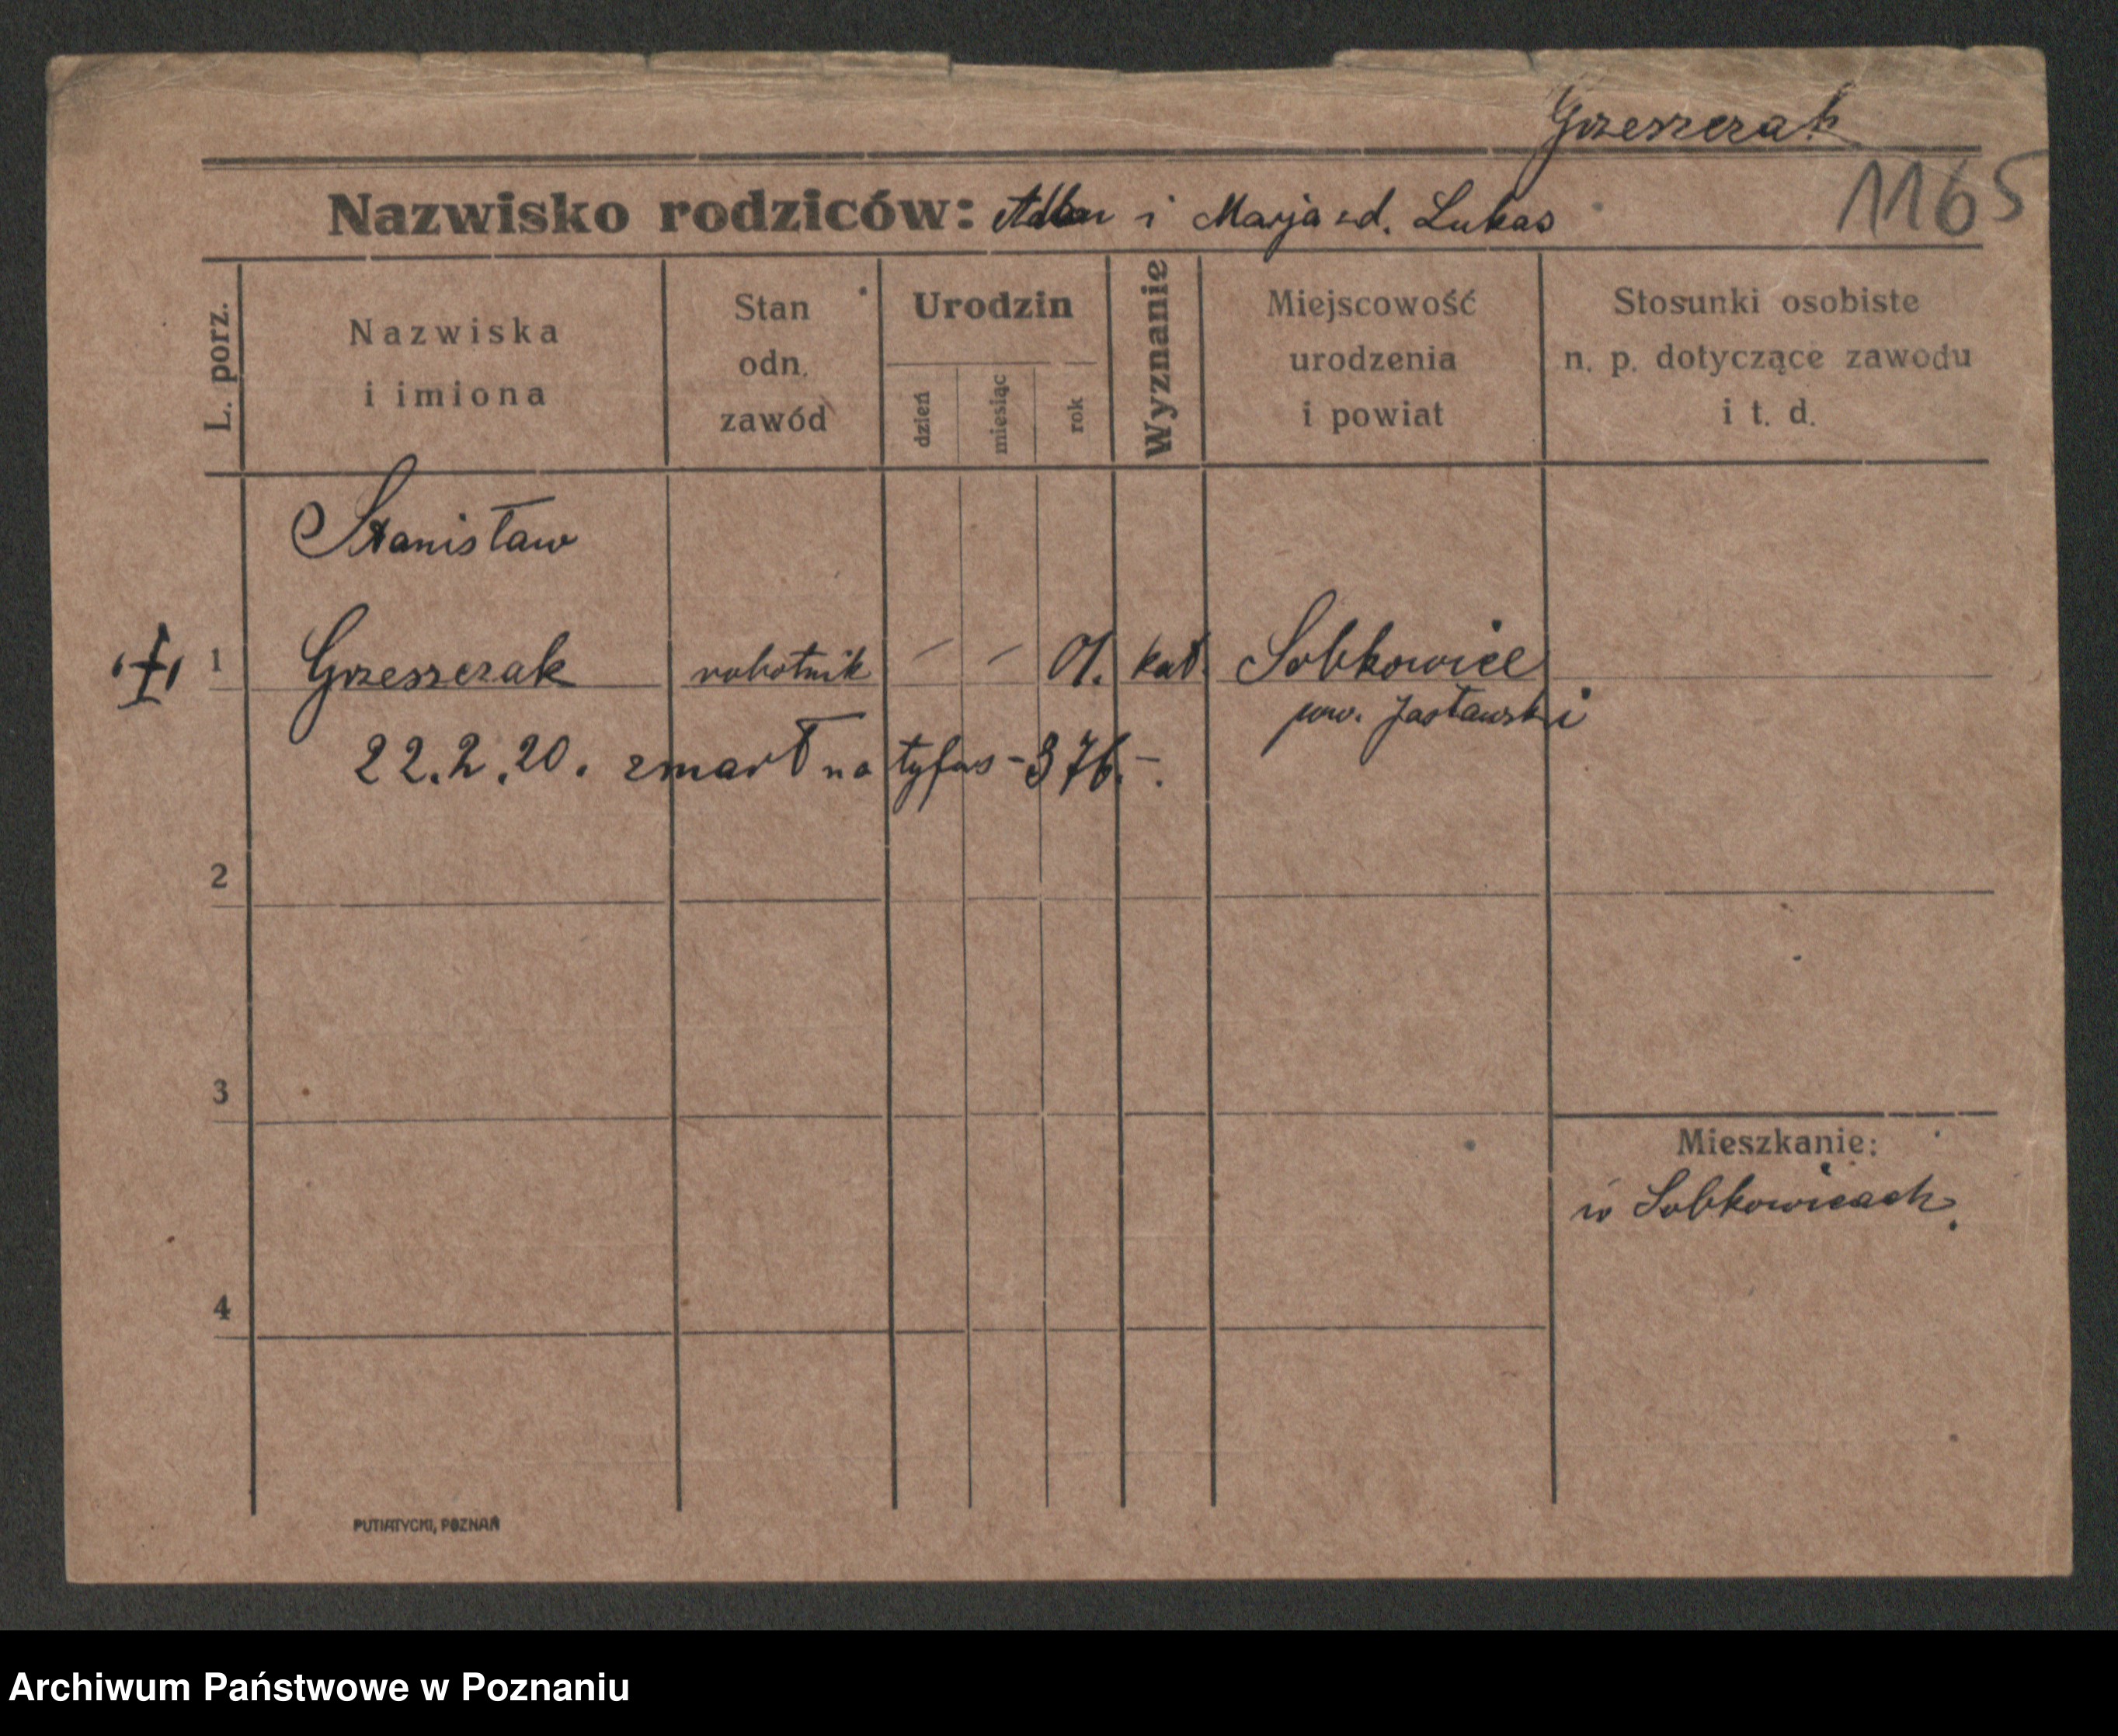 Grzeszczak
1165
Nazwisko rodziców: Adam i Marja zd. Lukas
L. porz.
Nazwiska
i imiona
Stan
odn.
zawód
Urodzin
dzień
miesiąc
rok
Wyznanie
Miejscowość
urodzenia
i powiat
Stosunki osobiste
n. p. dotyczące zawodu
i t. d.
Stanisław
1 Grzeszczak robotnik – – 01. kat. Sobkowice
pow. Jasławski
22.2.20. zmarł na tyfus - 376.-
2
3
Mieszkanie:
w Sobkowicach.
4
PUTIATYCKI, POZNAŃ
Archiwum Państwowe w Poznaniu